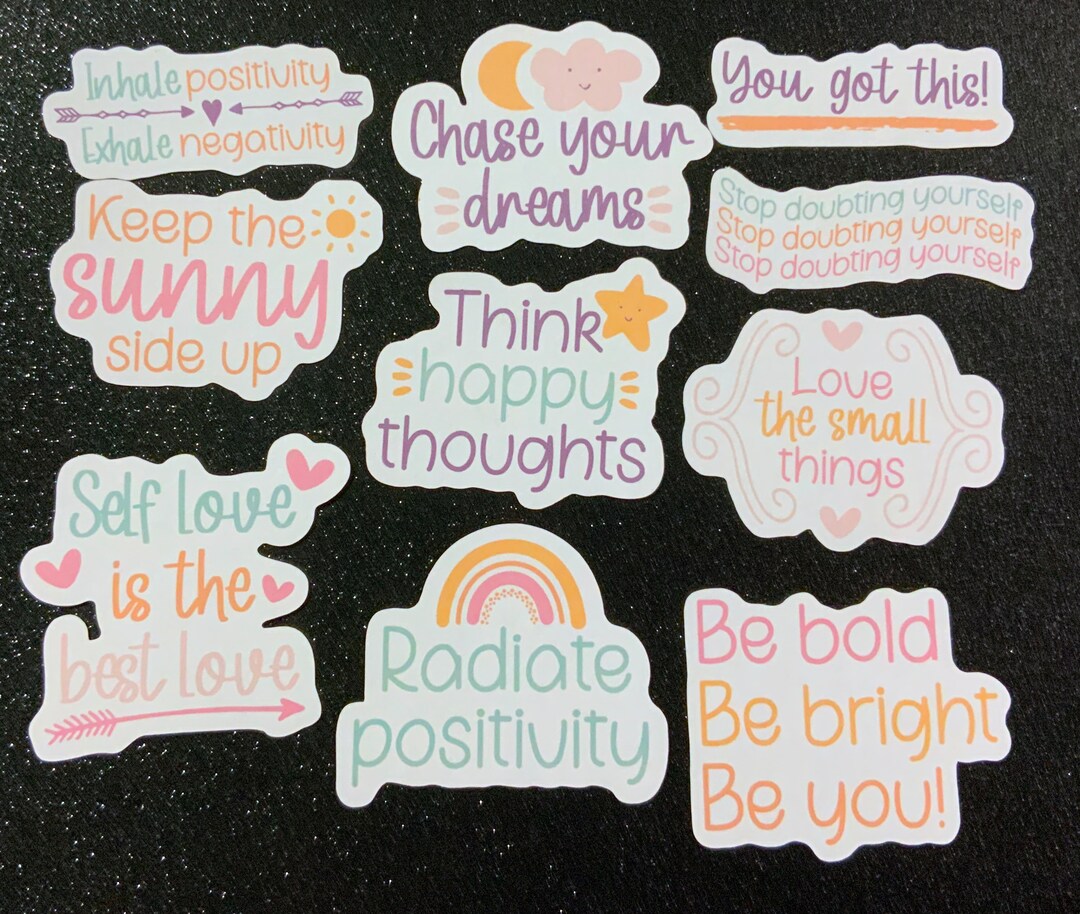 Inhale positivity
Exhale negativity
Chase your
dreams
You got this!
Keep the
sunny
side up
Stop doubting yourself
Stop doubting yourself
Stop doubting yourself
Think
happy
thoughts
Love
the small
things
Self love
is the
best love
Radiate
positivity
Be bold
Be bright
Be you!